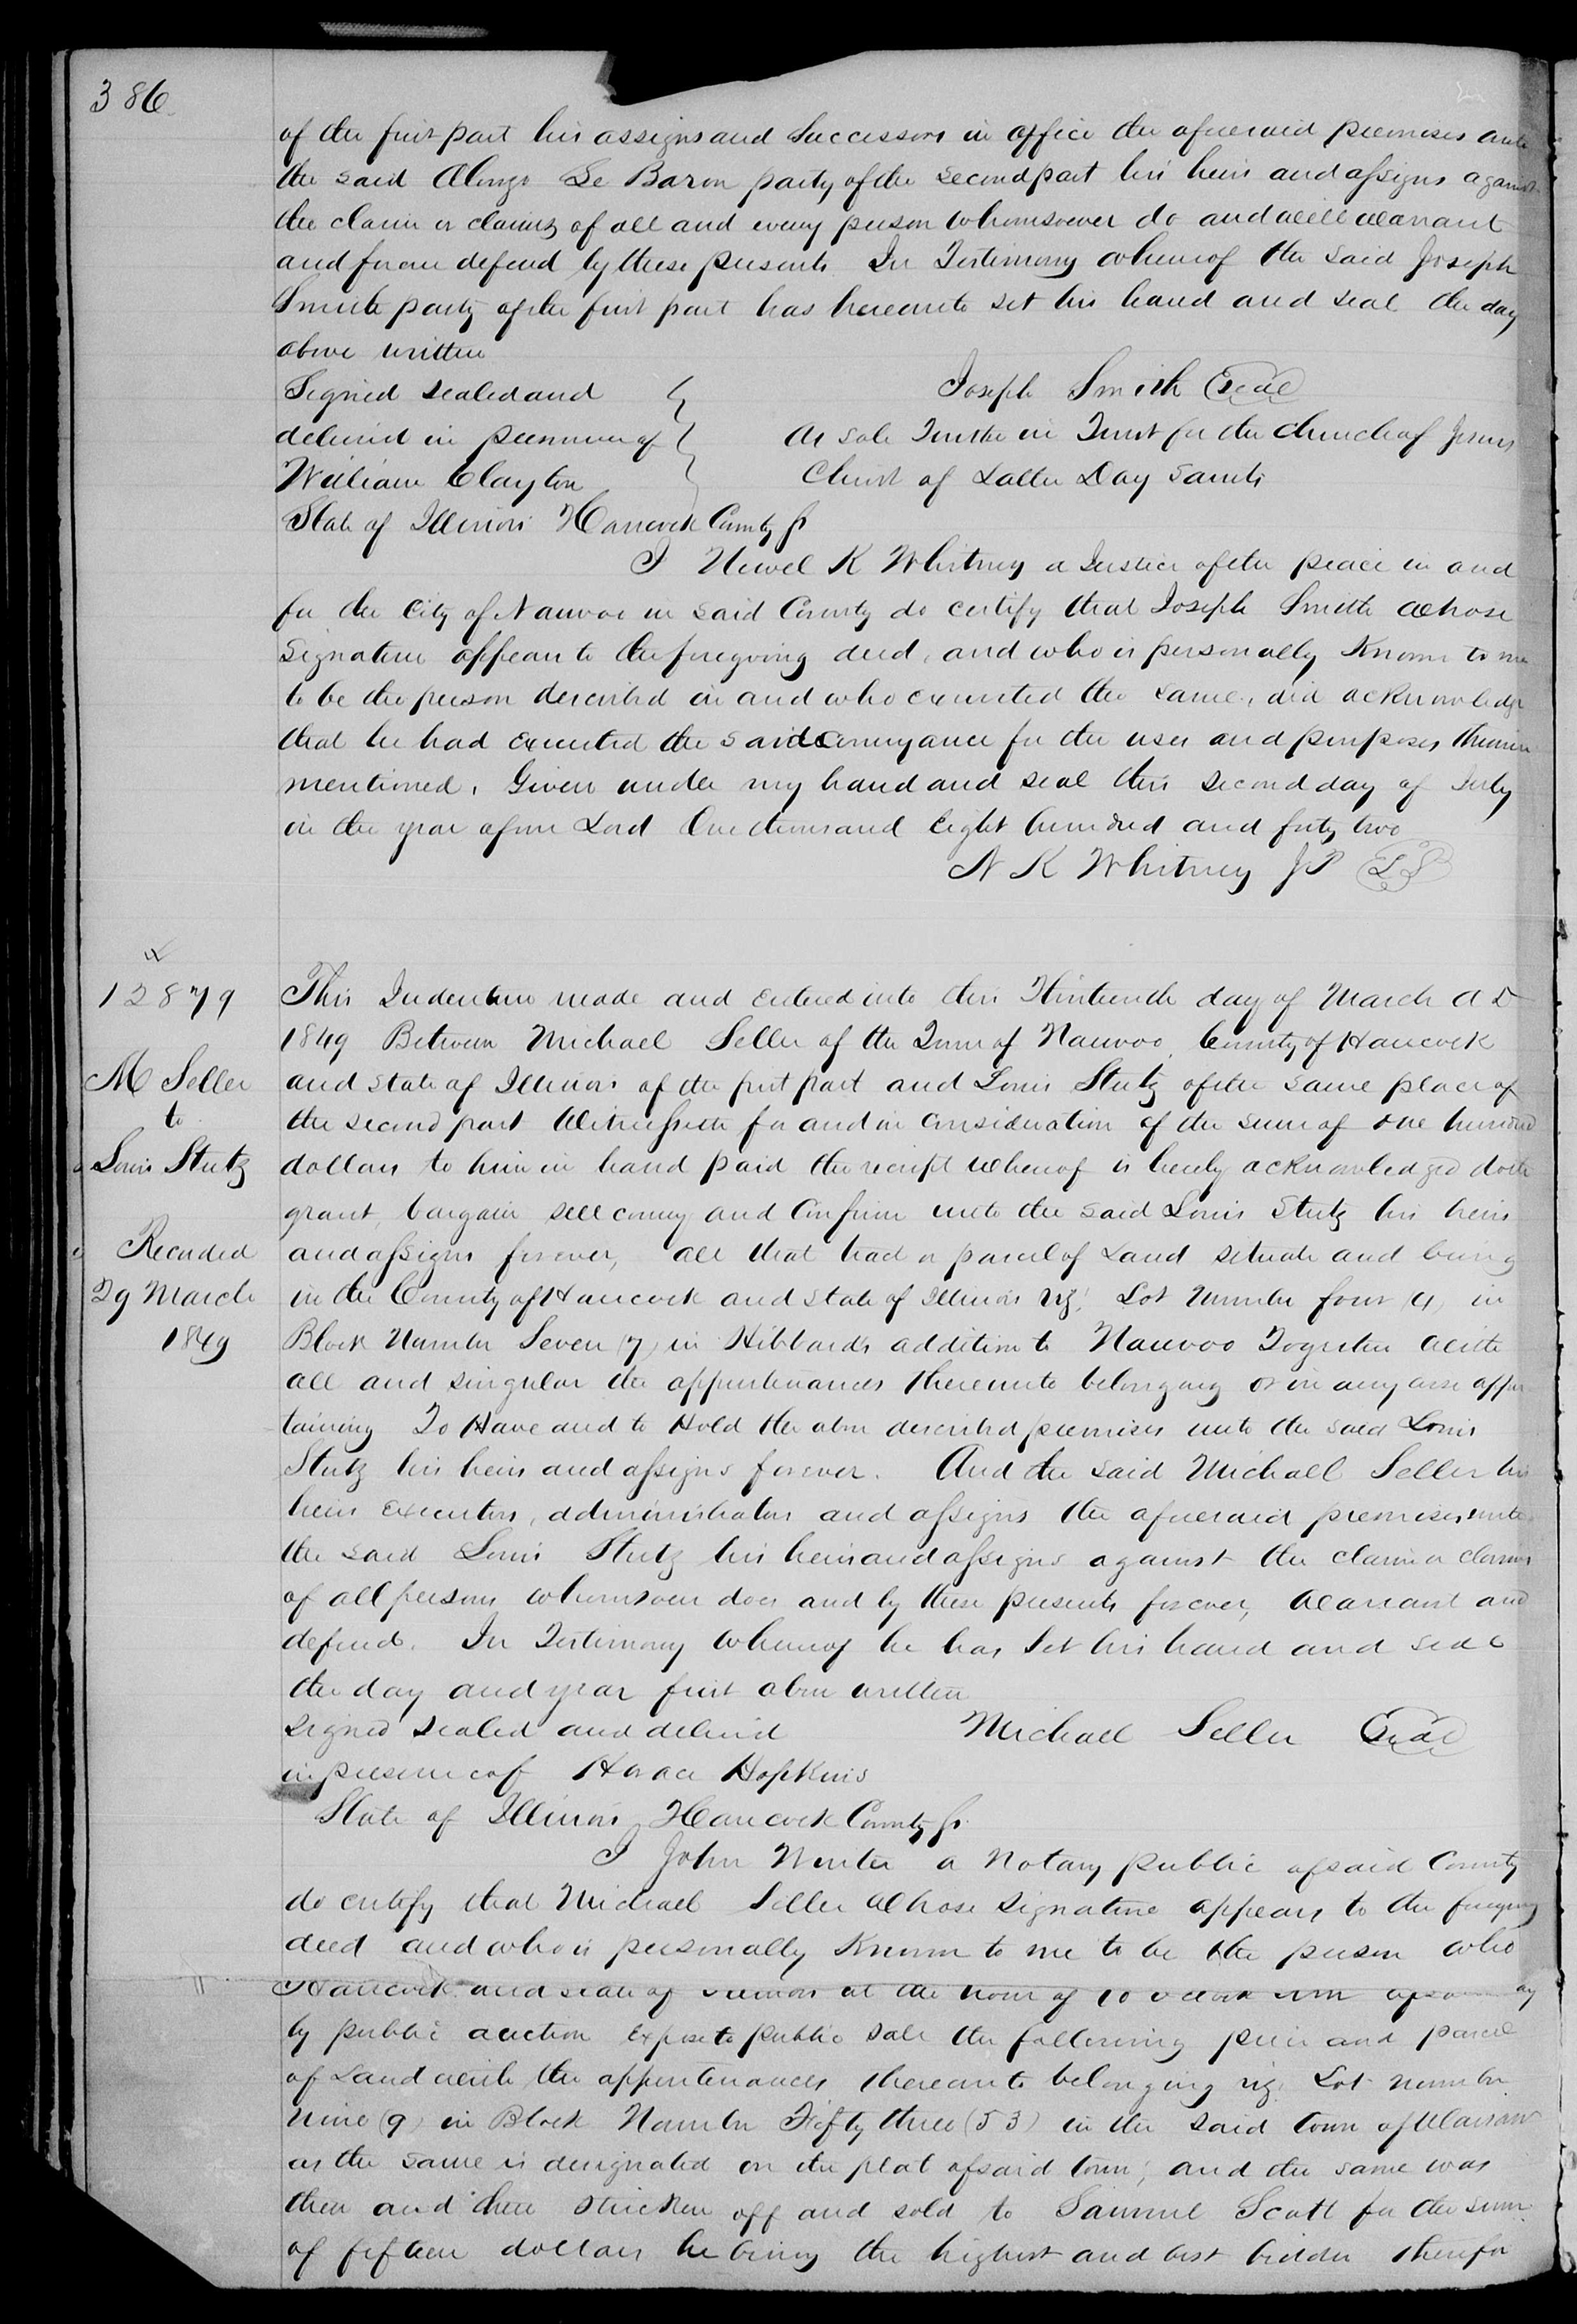 386
of the first part his assigns and Successors in office the aforesaid premises unto
the said Alonzo Le Baron party of the second part his heirs and assigns against
the claim or claims of all and every person whomsoever do and will warrant
and forever defend by these presents In Testimony whereof the said Joseph
Smith party of the first part has hereunto set his hand and seal the day
above written
Signed sealed and Joseph Smith Seal
delivered in presence of As sole Trustee in Trust for the Church of Jesus
William Clayton Christ of Latter Day Saints
State of Illinois Hancock County ss
I Newel K Whitney a Justice of the peace in and
for the City of Nauvoo in said County do certify that Joseph Smith whose
Signature appears to the foregoing deed, and who is personally Known to me
to be the person described in and who executed the same, did acknowledge
that he had executed the said Conveyance for the uses and purposes therein
mentioned. Given under my hand and seal this second day of July
in the year of our Lord One thousand Eight hundred and forty two
N K Whitney JP LS
12879
M Seller
to
Louis Stutz
Recorded
29 March
1849
This Indenture made and entered into this Thirteenth day of March A D
1849 Between Michael Seller of the Town of Nauvoo County of Hancock
and State of Illinois of the first part and Louis Stutz of the same place of
the second part Witnesseth for and in consideration of the sum of one hundred
dollars to him in hand paid the receipt whereof is hereby acknowledged doth
grant, bargain sell convey and Confirm unto the said Louis Stutz his heirs
and assigns forever, all that tract or parcel of Land situate and being
in the County of Hancock and State of Illinois viz: Lot Number four (4) in
Block Number Seven (7) in Hibbards addition to Nauvoo Together with
all and singular the appurtenances thereunto belonging or in any wise apper
taining To Have and to Hold the above described premises unto the said Louis
Stutz his heirs and assigns forever. And the said Michael Seller his
heirs executors, administrators and assigns the aforesaid premises unto
the said Louis Stutz his heirs and assigns against the claim or claims
of all persons whomsoever does and by these presents forever, Warrant and
defend. In Testimony whereof he has Set his hand and seal
the day and year first above written
Signed sealed and delivered Michael Seller Seal
in presence of Horace Hopkins
State of Illinois Hancock County ss.
I John Winter a Notary public of said County
do certify that Michael Seller whose signature appears to the foregoing
deed and who is personally Known to me to be the person who
Hancock and state of Illinois at the hour of 10 o clock
by public auction expose to public sale the following piece and parcel
of Land with the appurtenances thereunto belonging viz: Lot number
nine (9) in Block Number Fifty three (53) in the said town of Warsaw
as the same is designated on the plat of said town; and the same was
then and there stricken off and sold to Samuel Scott for the sum
of fifteen dollars he being the highest and best bidder therefor